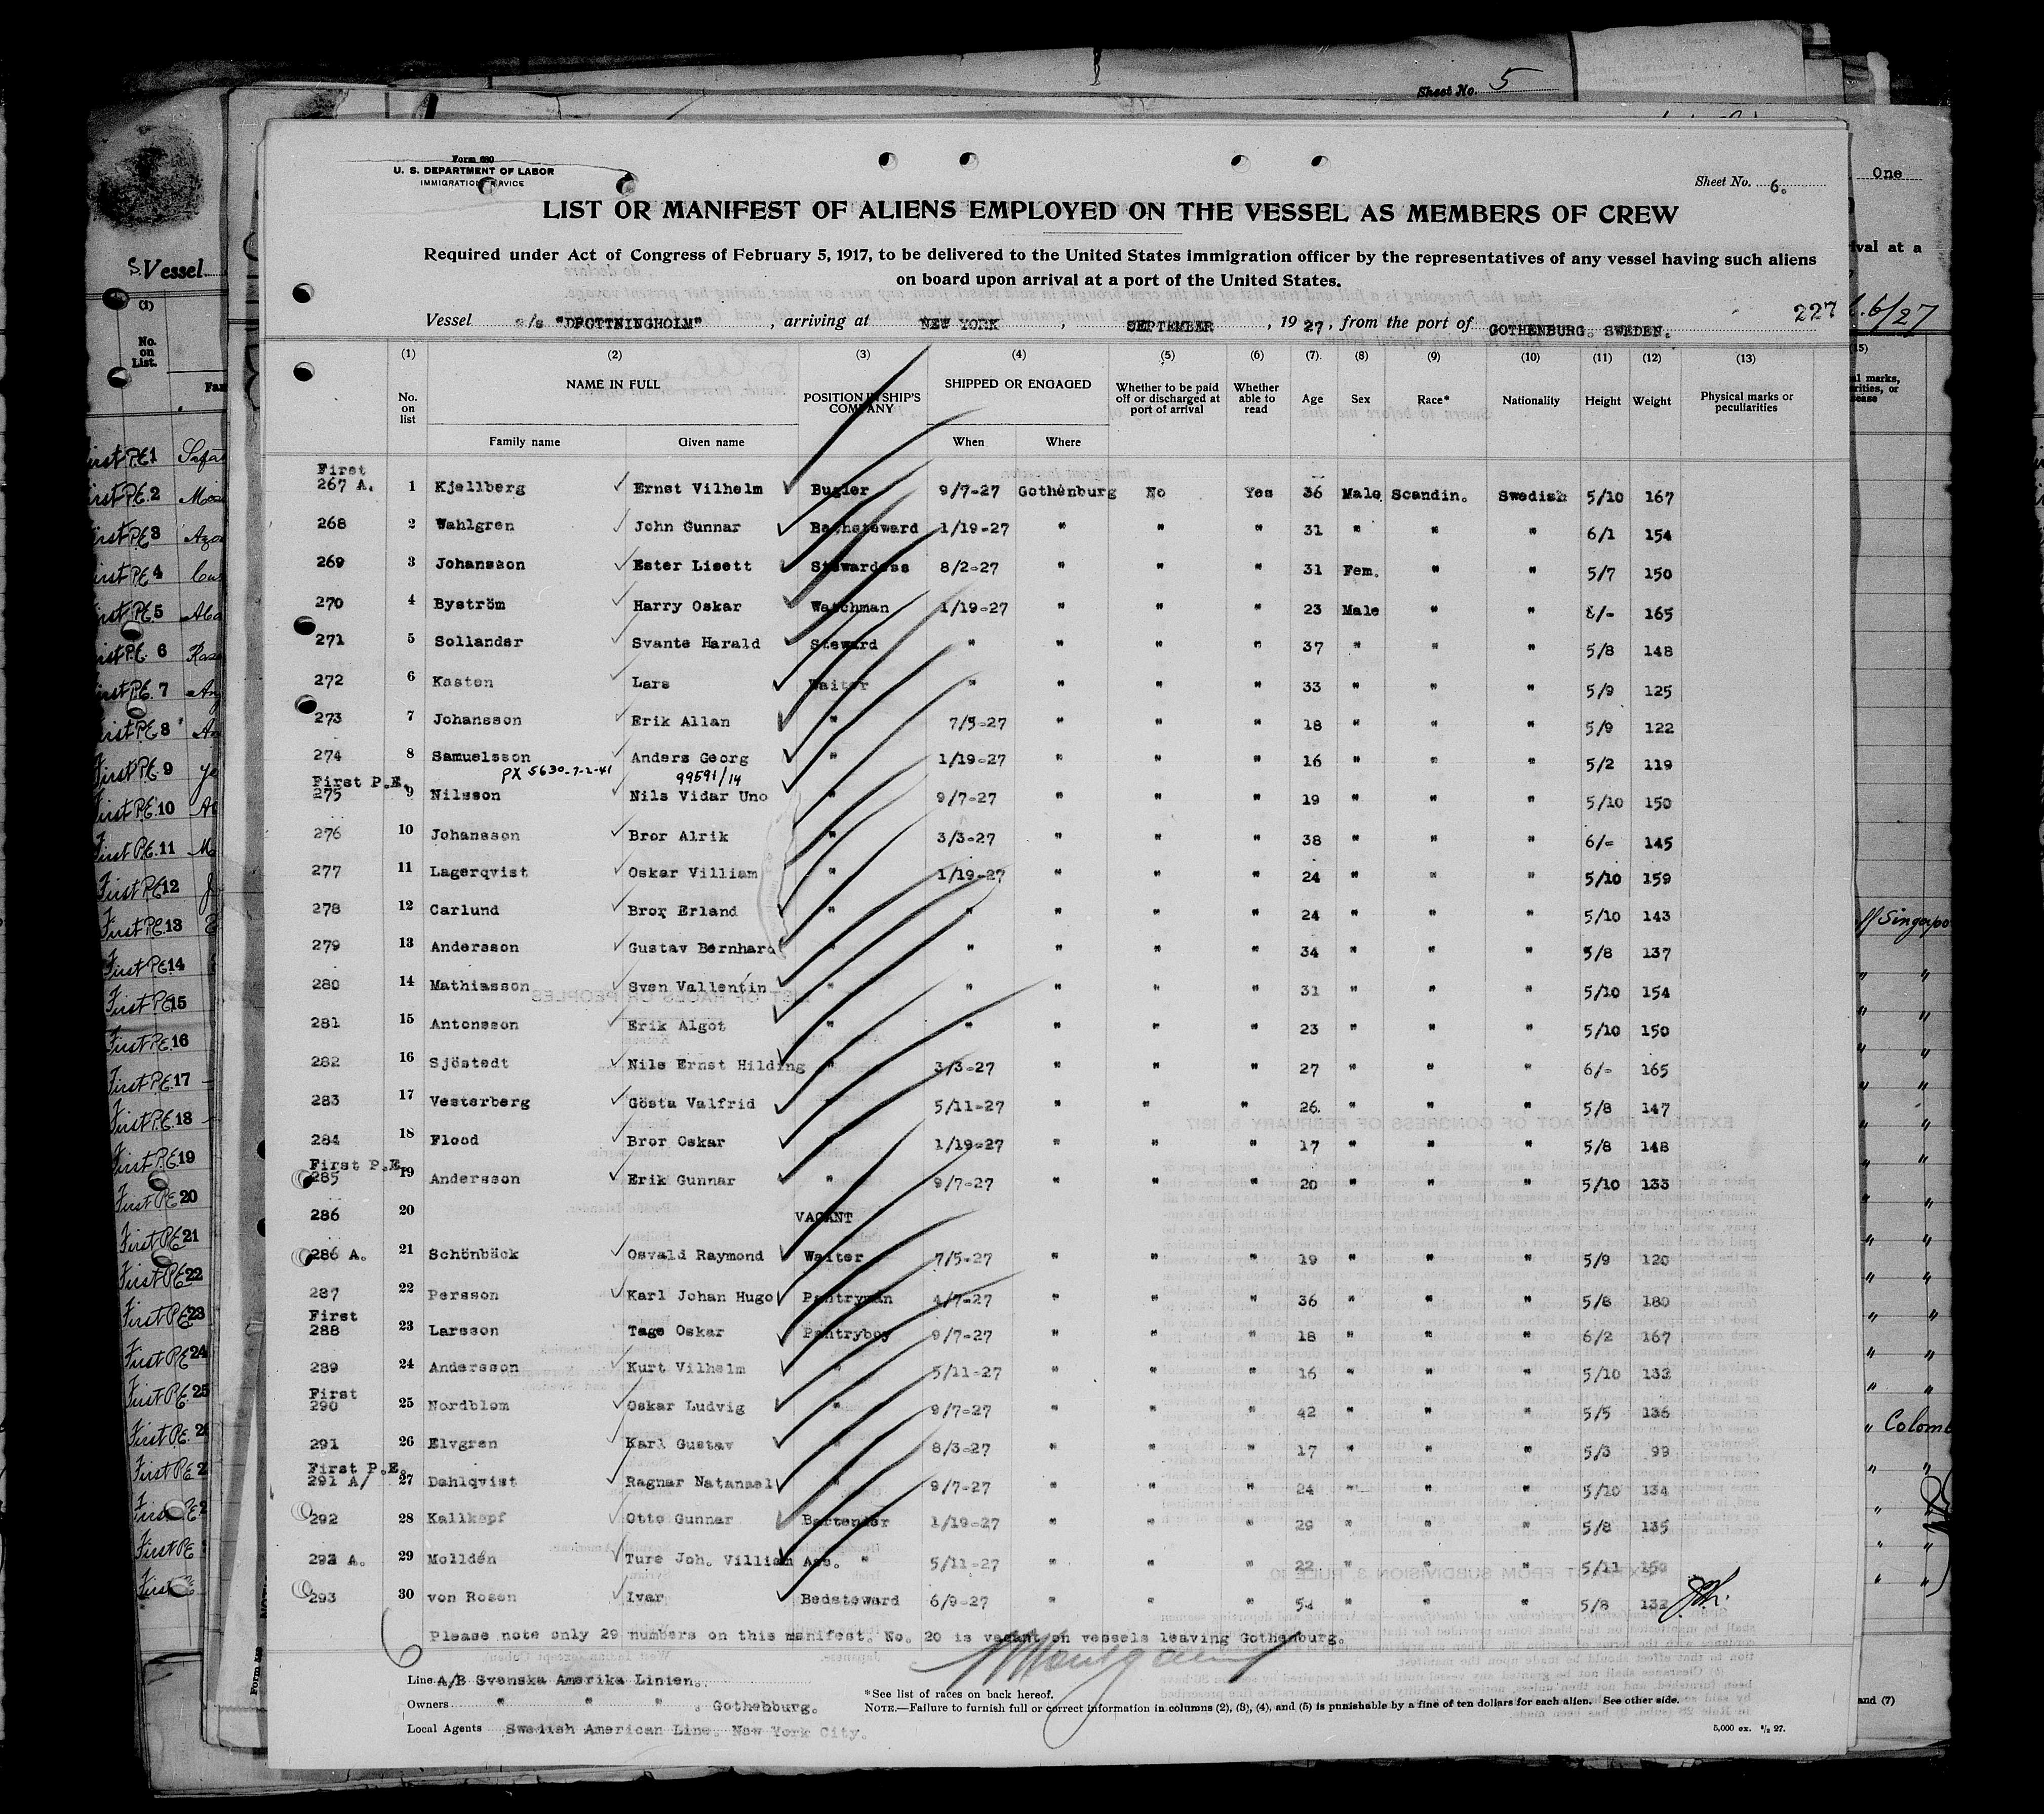 Sheet No. 5
Form 680
U. S. DEPARTMENT OF LABOR
IMMIGRATION SERVICE
Sheet No. 6.
One
LIST OR MANIFEST OF ALIENS EMPLOYED ON THE VESSEL AS MEMBERS OF CREW
Required under Act of Congress of February 5, 1917, to be delivered to the United States immigration officer by the representatives of any vessel having such aliens
on board upon arrival at a port of the United States.
Vessel s/s "DROTTNINGHOLM", arriving at NEW YORK, SEPTEMBER, 1927, from the port of GOTHENBURG. SWEDEN. 227
(1) (2) (3) (4) (5) (6) (7) (8) (9) (10) (11) (12) (13)
No. on list NAME IN FULL POSITION IN SHIP'S COMPANY SHIPPED OR ENGAGED Whether to be paid off or discharged at port of arrival Whether able to read Age Sex Race* Nationality Height Weight Physical marks or peculiarities
Family name Given name When Where
First
267 A. 1 Kjellberg Ernst Vilhelm Bugler 9/7-27 Gothenburg No Yes 36 Male Scandin. Swedish 5/10 167
268 2 Wahlgren John Gunnar Bathsteward 1/19-27 " " " 31 " " " 6/1 154
269 3 Johansson Ester Lisett Stewardess 8/2-27 " " " 31 Fem. " " 5/7 150
270 4 Byström Harry Oskar Watchman 1/19-27 " " " 23 Male " " 6/- 165
271 5 Sollander Svante Harald Steward " " " " 37 " " " 5/8 148
272 6 Kasten Lars Waiter " " " " 33 " " " 5/9 125
273 7 Johansson Erik Allan " 7/5-27 " " " 18 " " " 5/9 122
274 8 Samuelsson Anders Georg " 1/19-27 " " " 16 " " " 5/2 119
PX 5630-7-2-41 99591/14
First P.E.
275 9 Nilsson Nils Vidar Uno " 9/7-27 " " " 19 " " " 5/10 150
276 10 Johansson Bror Alrik " 3/3-27 " " " 38 " " " 6/- 145
277 11 Lagerqvist Oskar Villiam " 1/19-27 " " " 24 " " " 5/10 159
278 12 Carlund Bror Erland " " " " " 24 " " " 5/10 143
279 13 Andersson Gustav Bernhard " " " " " 34 " " " 5/8 137
280 14 Mathiasson Sven Vallentin " " " " " 31 " " " 5/10 154
281 15 Antonsson Erik Algot " " " " " 23 " " " 5/10 150
282 16 Sjöstedt Nils Ernst Hilding " 3/3-27 " " " 27 " " " 6/- 165
283 17 Vesterberg Gösta Valfrid " 5/11-27 " " " 26. " " " 5/8 147
284 18 Flood Bror Oskar " 1/19-27 " " " 17 " " " 5/8 148
First P.E.
285 19 Andersson Erik Gunnar " 9/7-27 " " " 20 " " " 5/10 133
286 20 VACANT
286 A. 21 Schönbäck Osvald Raymond Waiter 7/5-27 " " " 19 " " " 5/9 120
287 22 Persson Karl Johan Hugo Pantryman 4/7-27 " " " 36 " " " 5/8 180
First
288 23 Larsson Tage Oskar Pantryboy 9/7-27 " " " 18 " " " 6/2 167
289 24 Andersson Kurt Vilhelm " 5/11-27 " " " 16 " " " 5/10 132
First
290 25 Nordblom Oskar Ludvig " 9/7-27 " " " 42 " " " 5/5 136
291 26 Elvgren Karl Gustav " 8/3-27 " " " 17 " " " 5/3 99
First P.E.
291 A/ 27 Dahlqvist Ragnar Natanael " 9/7-27 " " " 24 " " " 5/10 134
292 28 Kallkopf Otto Gunnar Bartender 1/19-27 " " " 29 " " " 5/8 135
292 A. 29 Molldén Ture Joh. Villiam Ass. " 5/11-27 " " " 22 " " " 5/11 150
293 30 von Rosen Ivar Bedsteward 6/9-27 " " " 54 " " " 5/8 132
Please note only 29 numbers on this manifest. No. 20 is vacant on vessels leaving Gothenburg.
Line A/B Svenska Amerika Linien.
Owners " " " , Gothebburg.
Local Agents Swedish American Line. New York City.
*See list of races on back hereof.
NOTE.—Failure to furnish full or correct information in columns (2), (3), (4), and (5) is punishable by a fine of ten dollars for each alien. See other side.
5,000 ex. 2/2 27.
S. Vessel
(1)
No. on List.
First P.E. 1
First P.E. 2
First P.E. 3
First P.E. 4
First P.E. 5
First P.E. 6
First P.E. 7
First P.E. 8
First P.E. 9
First P.E. 10
First P.E. 11
First P.E. 12
First P.E. 13
First P.E. 14
First P.E. 15
First P.E. 16
First P.E. 17
First P.E. 18
First P.E. 19
First P.E. 20
First P.E. 21
First P.E. 22
First P.E. 23
First P.E. 24
First P.E. 25
6/27
and (7)